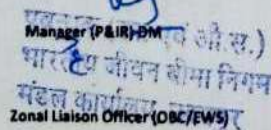 एवं औ.स.)
Manager (P&IR) DM
भारतीय जीवन बीमा निगम
मंडल कार्यालय
Zonal Liaison Officer (OBC/EWS)